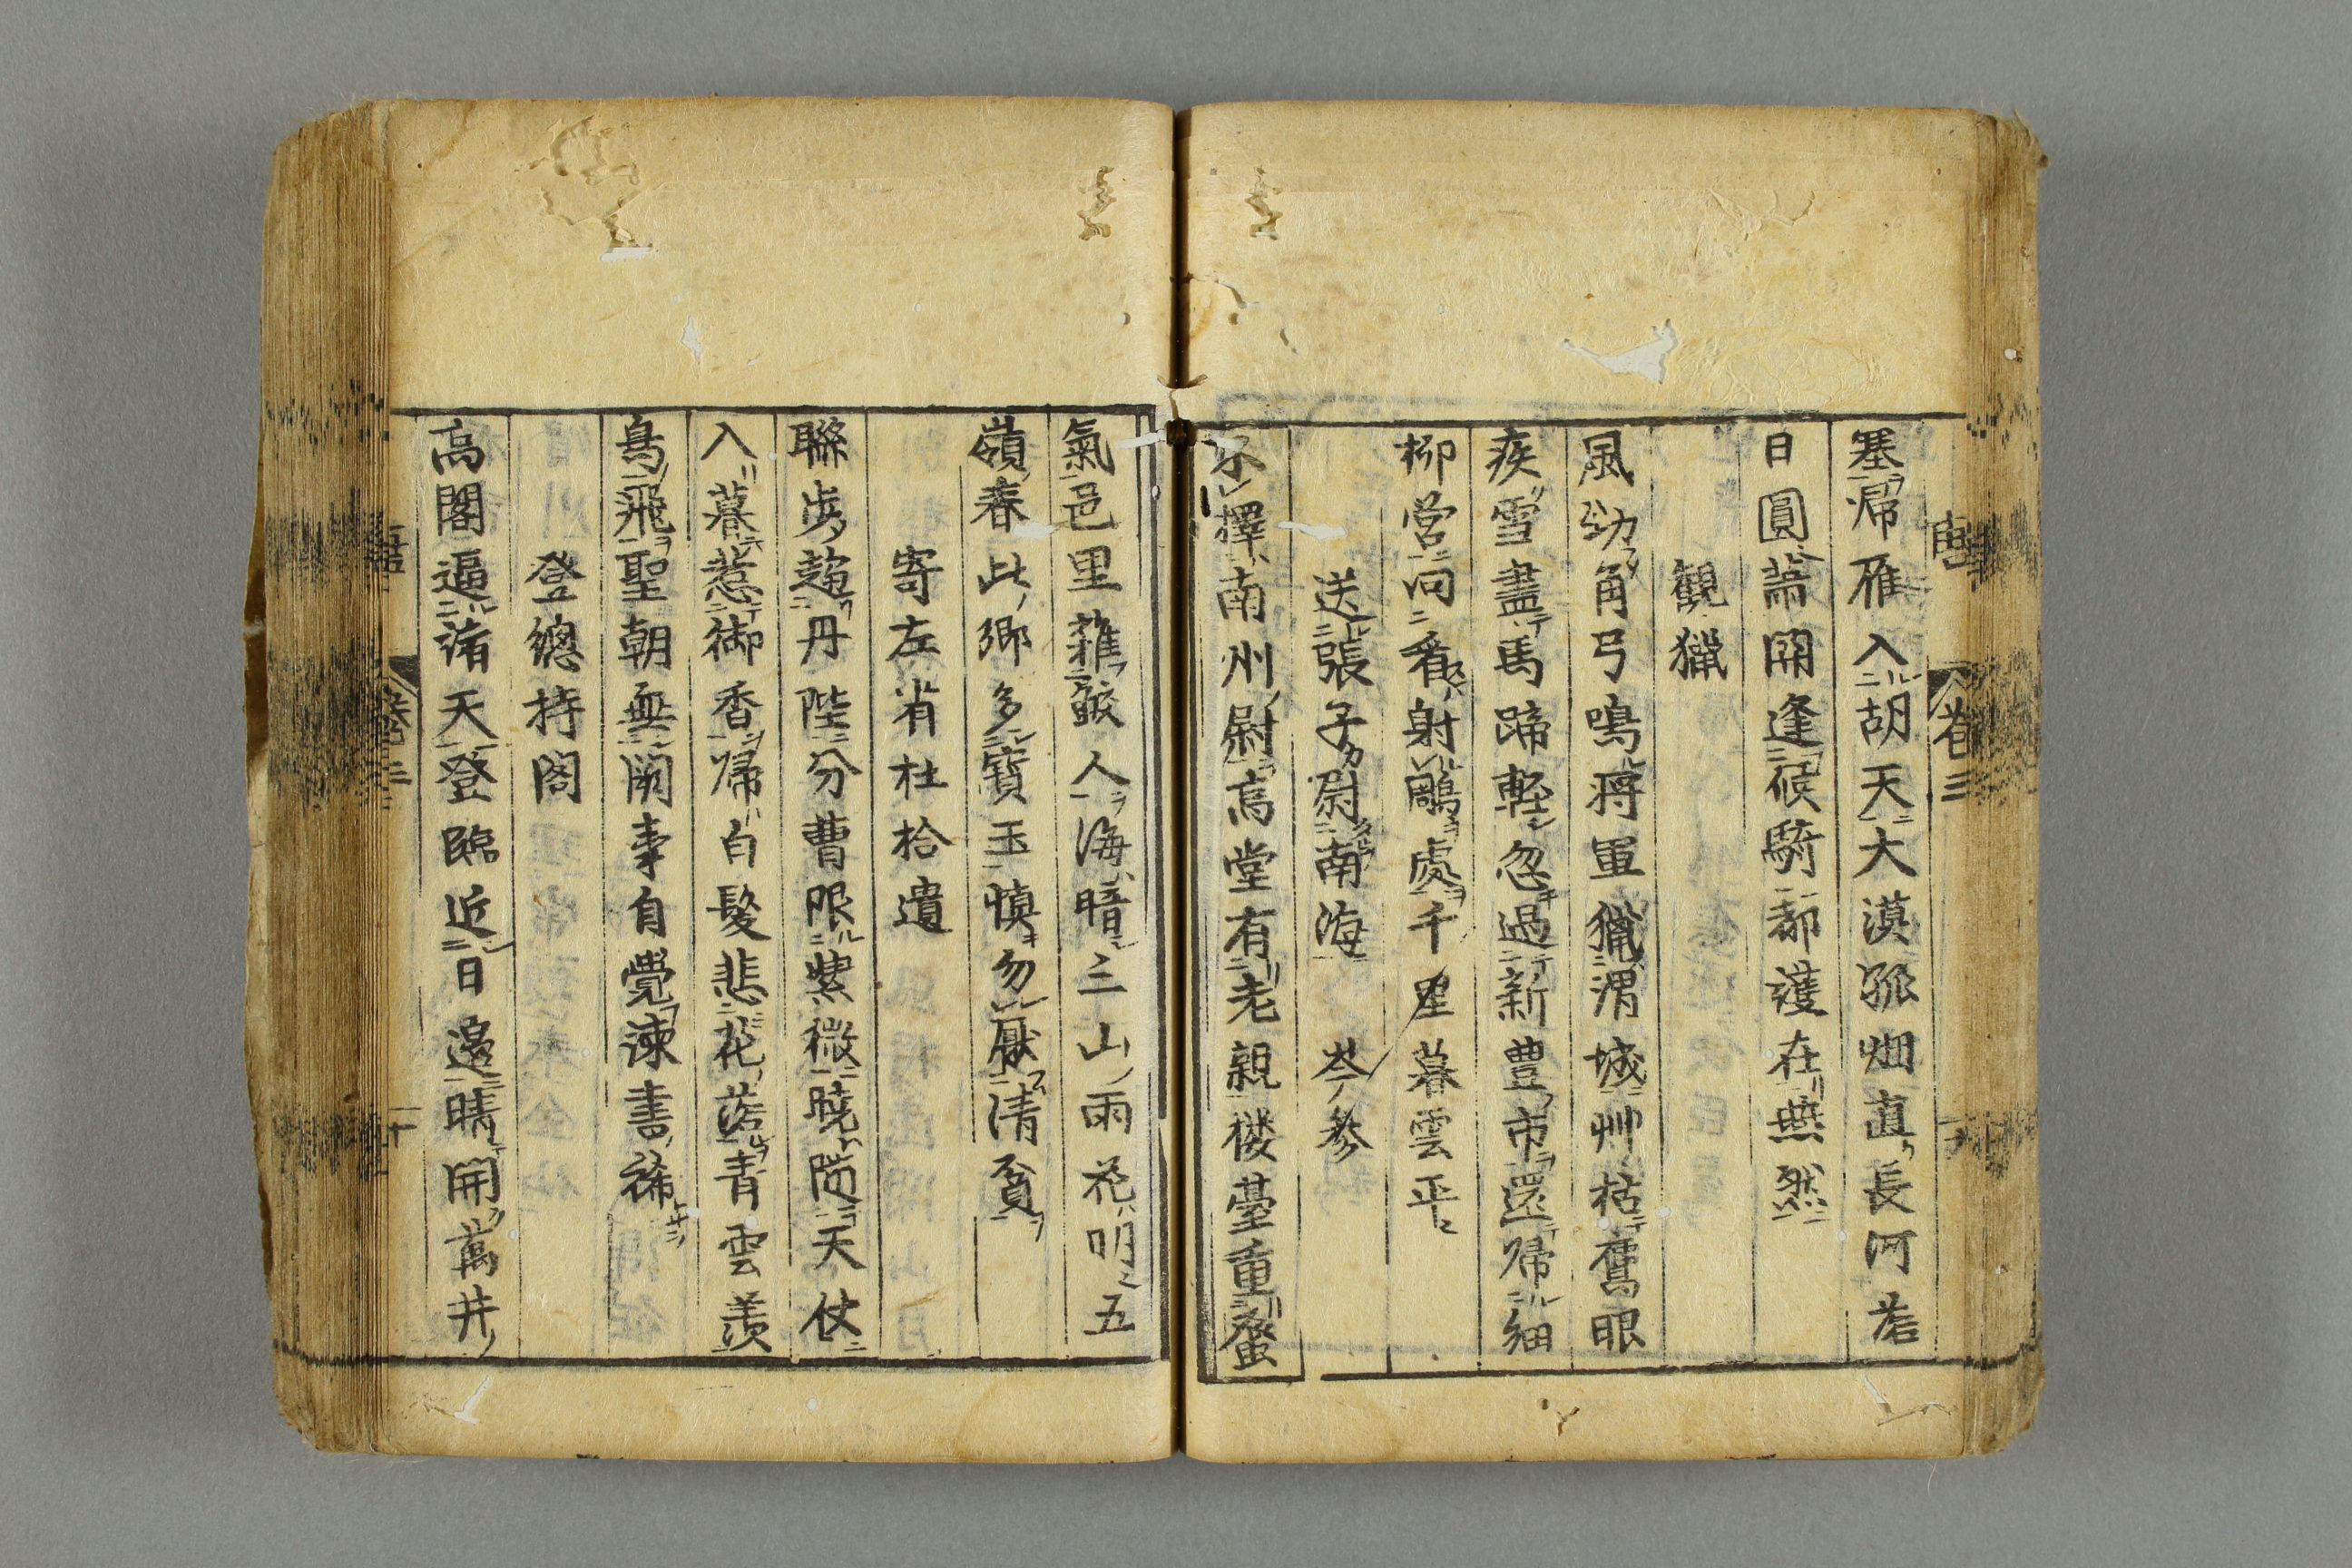 塞帰雁入胡天大漠孤烟直長河落
日圓蕭關逢候騎都護在燕然
觀獵
風勁角弓鳴将軍獵渭城艸枯鷹眼
疾雪盡馬蹄軽忽過新豊市還帰細
柳営回看射鵰處千里暮雲平
送張子尉南海 岑参
不擇南州尉高堂有老親楼臺重蜃
氣邑里雜鮫人海暗三山雨花明五
嶺春此郷多寳玉慎勿厭清貧
寄左省杜拾遺
聯歩趨丹陛分曹限紫微暁随天仗
入暮惹御香帰白髪悲花落青雲羨
鳥飛聖朝無闕事自覺諫書稀
登總持閣
高閣逼諸天登臨近日邉晴開萬井